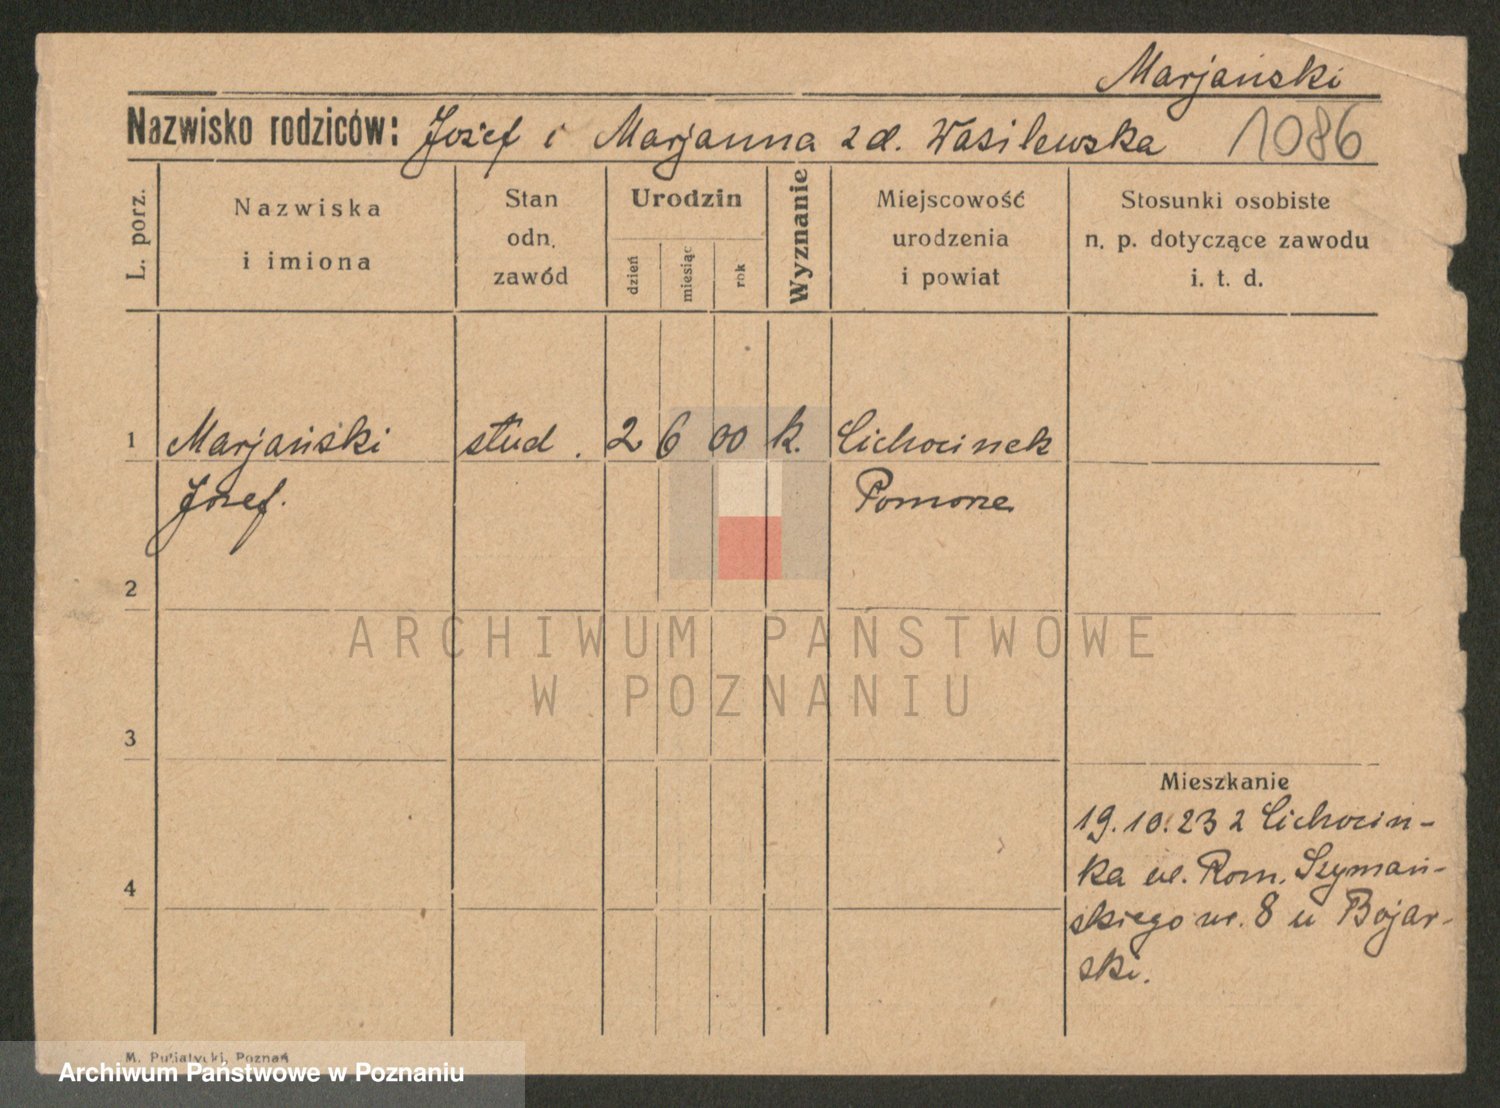 Marjański
Nazwisko rodziców: Józef i Marjanna z d. Wasilewska 1086
L. porz.
Nazwiska
i imiona
Stan
odn.
zawód
Urodzin
dzień
miesiąc
rok
Wyznanie
Miejscowość
urodzenia
i powiat
Stosunki osobiste
n. p. dotyczące zawodu
i. t. d.
1 Marjański stud. 2 6 00 k. Cichocinek
Józef. Pomorze
2
ARCHIWUM PAŃSTWOWE
W POZNANIU
3
Mieszkanie
19.10.23 z Cichocin-
ka ul. Rom. Szymań-
4
skiego nr. 8 u Bojar-
ski.
M. Putiatycki, Poznań
Archiwum Państwowe w Poznaniu